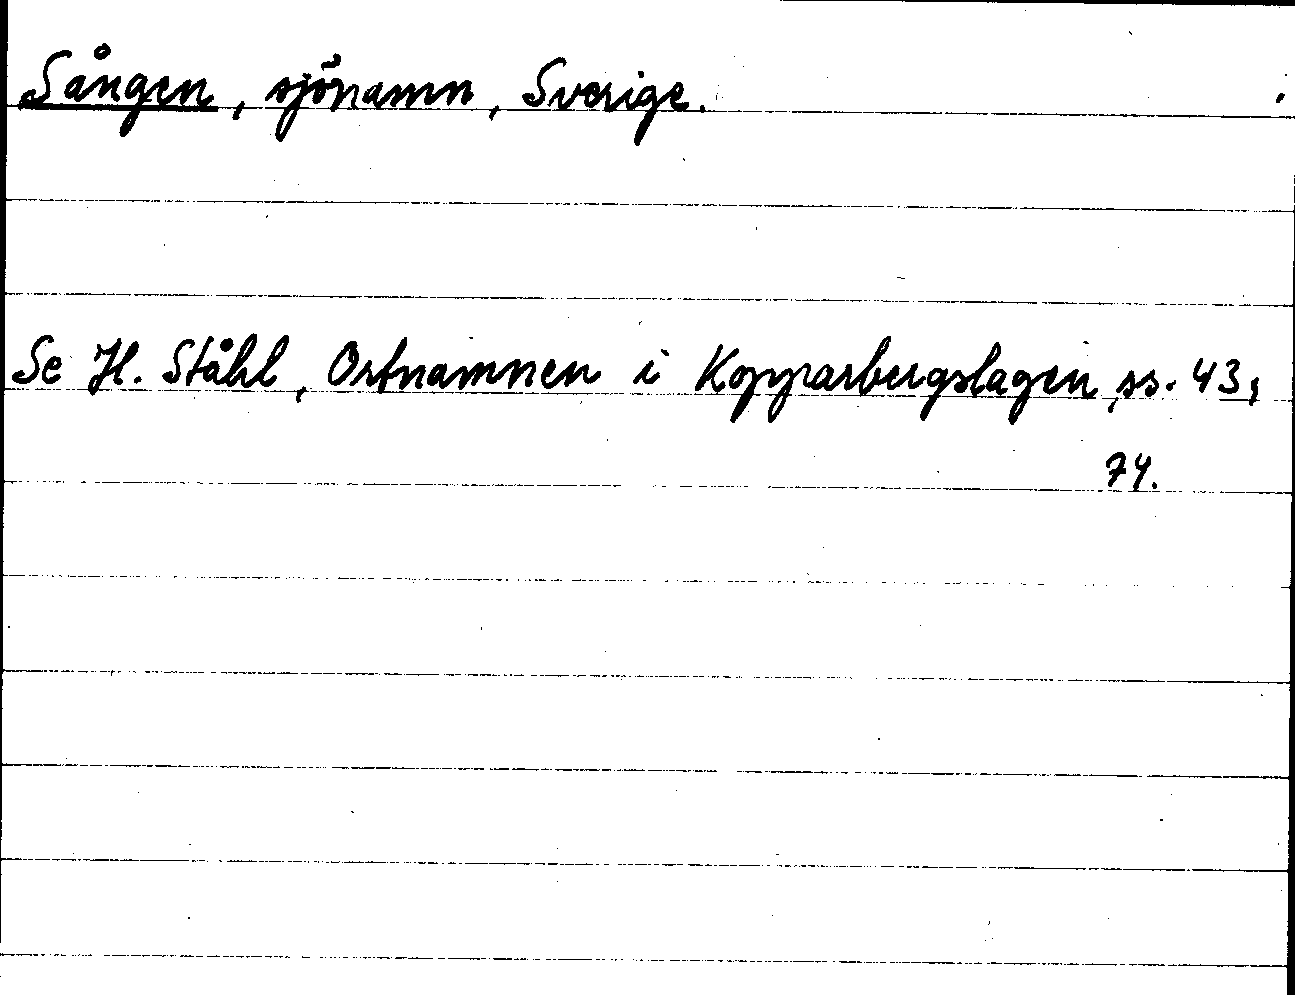 Sången, sjönamn, Sverige.
Se H. Ståhl, Ortnamnen i Kopparbergslagen, ss. 43,
74.